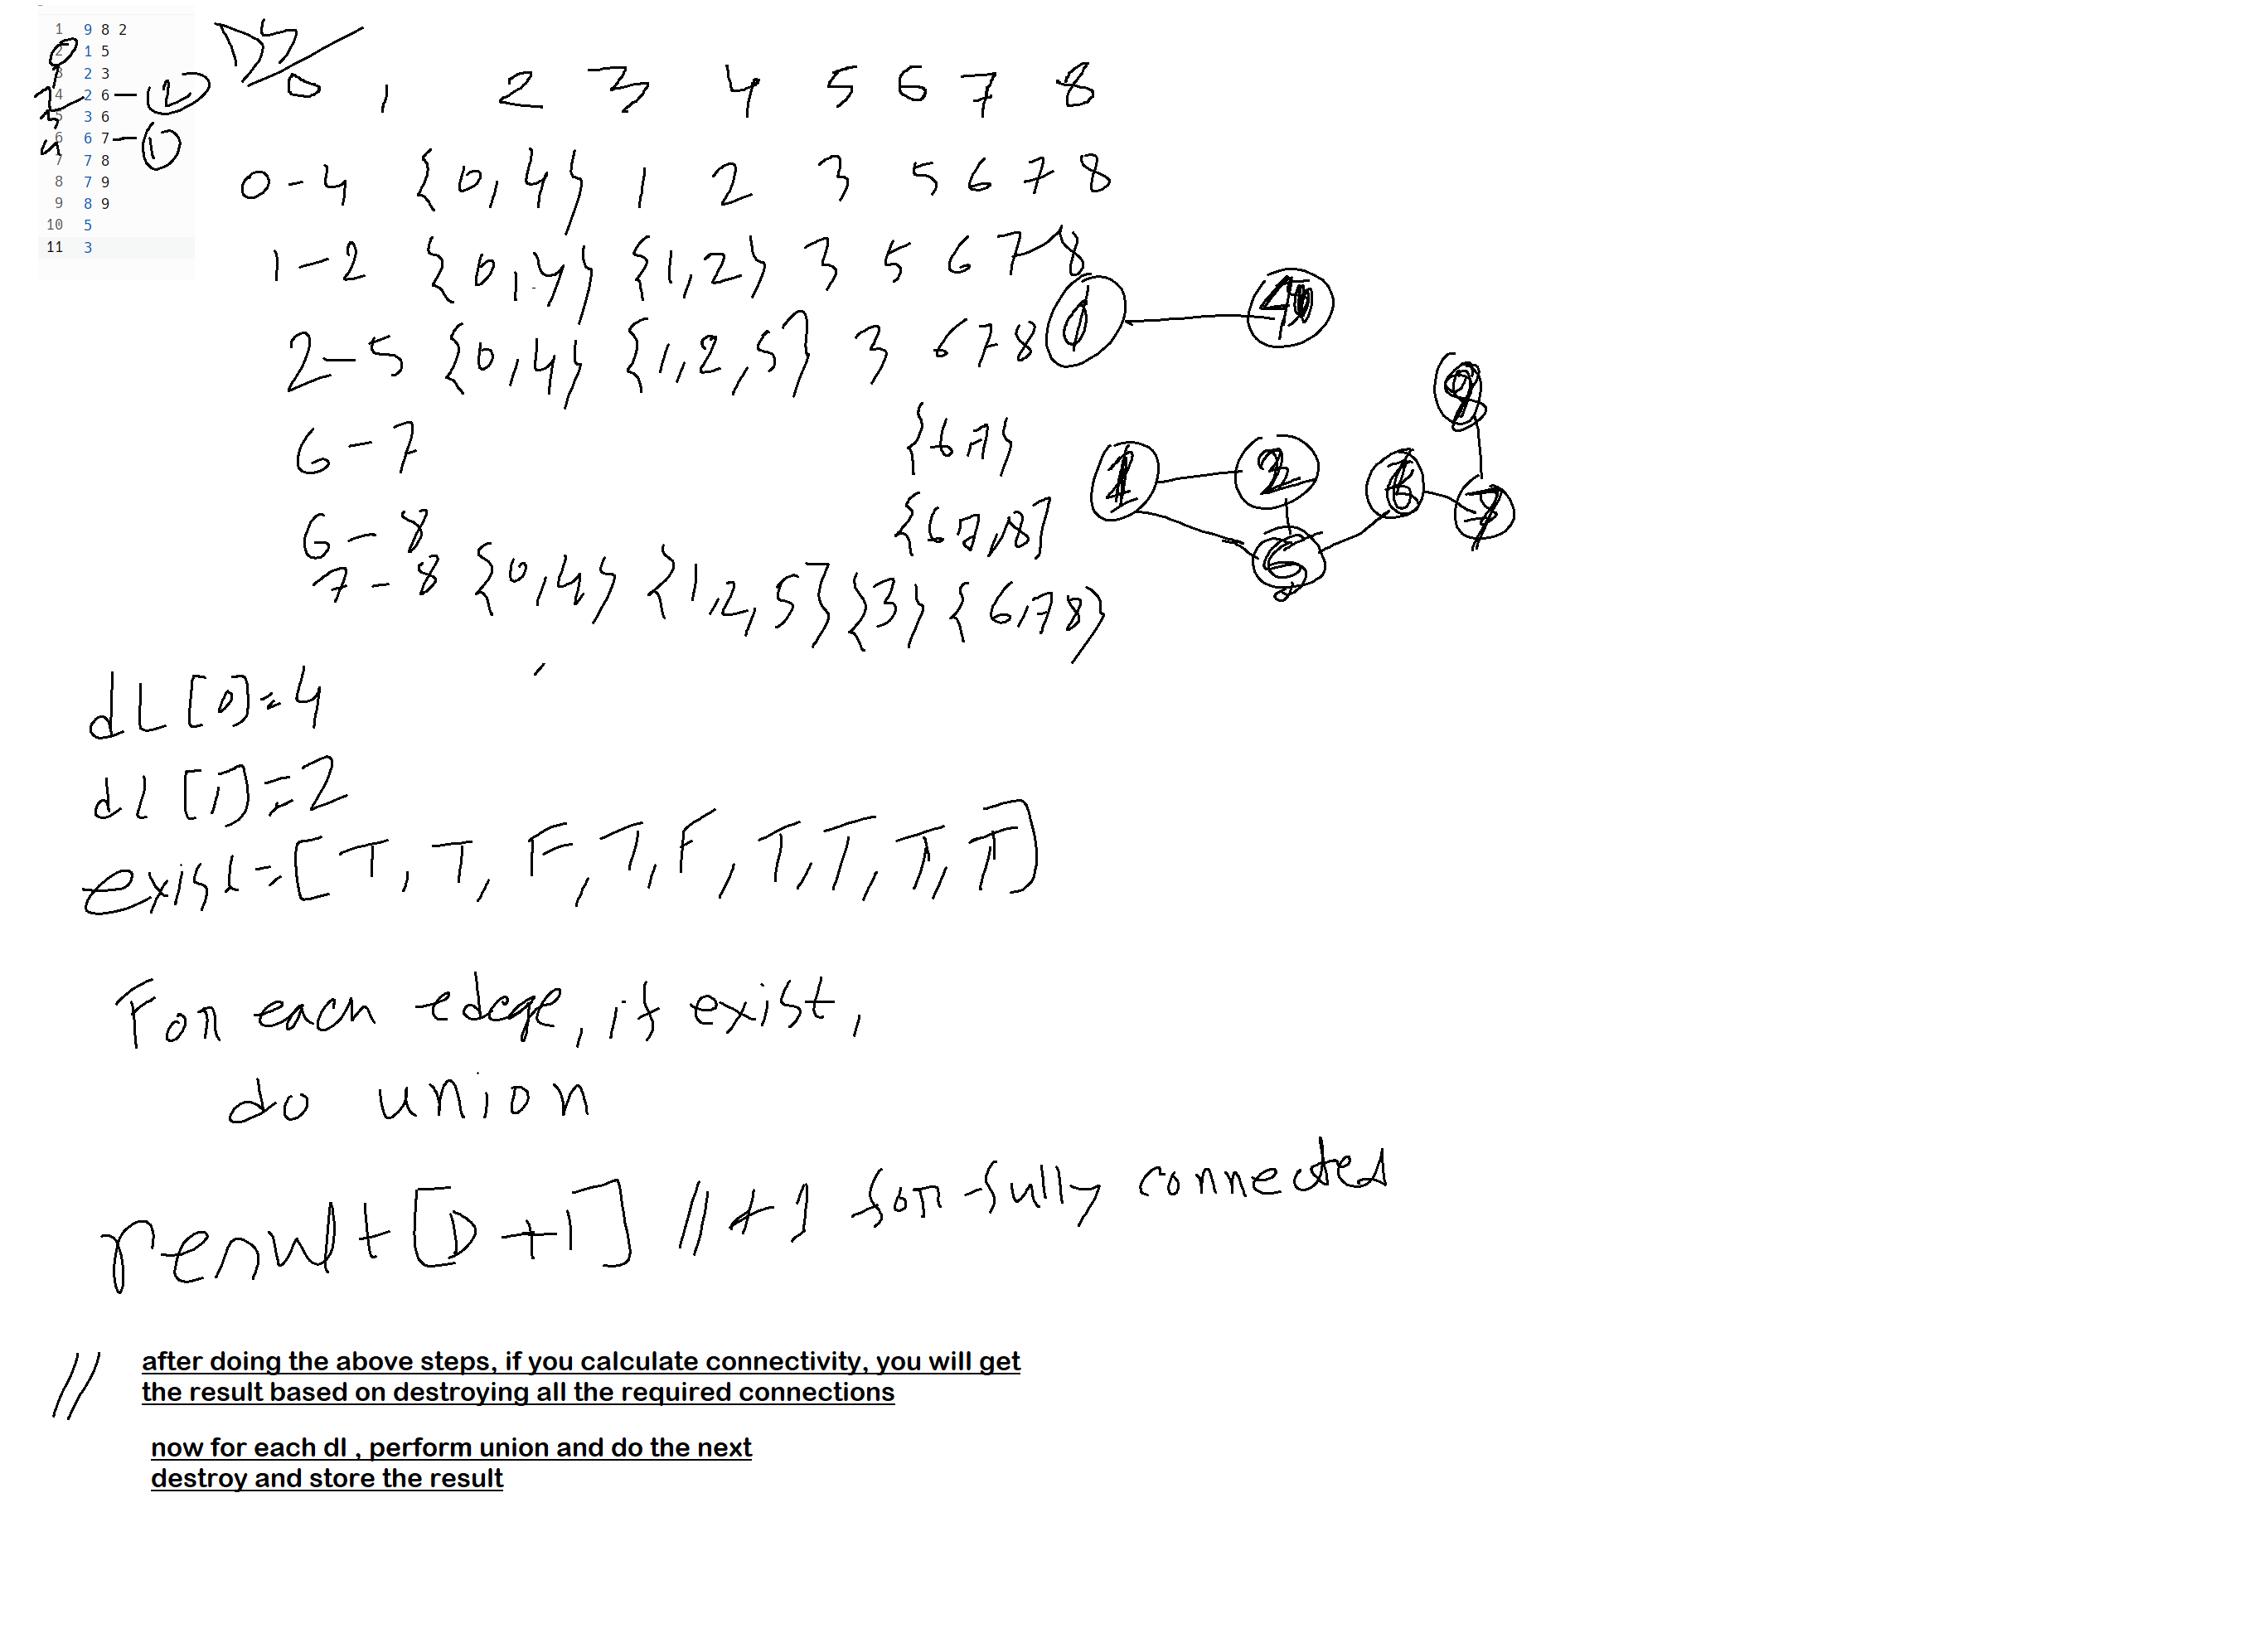 1 9 8 2
2 1 5
3 2 3
4 2 6 — 2
5 3 6
6 6 7 — 1
7 7 8
8 7 9
9 8 9
10 5
11 3
0
1
2
3
4
DS
0 1 2 3 4 5 6 7 8
0-4 {0,4} 1 2 3 5 6 7 8
1-2 {0,4} {1,2} 3 5 6 7 8
2-5 {0,4} {1,2,5} 3 6 7 8
6-7 {67}
6-8 {67,8}
7-8 {0,4} {1,2,5} {3} {6,78}
dL[0]=4
dL[1]=2
exist=[T,T,F,T,F,T,T,T,T]
For each edege, if exist,
do union
result[D+1] //+1 for fully connected
// after doing the above steps, if you calculate connectivity, you will get
the result based on destroying all the required connections
now for each dl , perform union and do the next
destroy and store the result